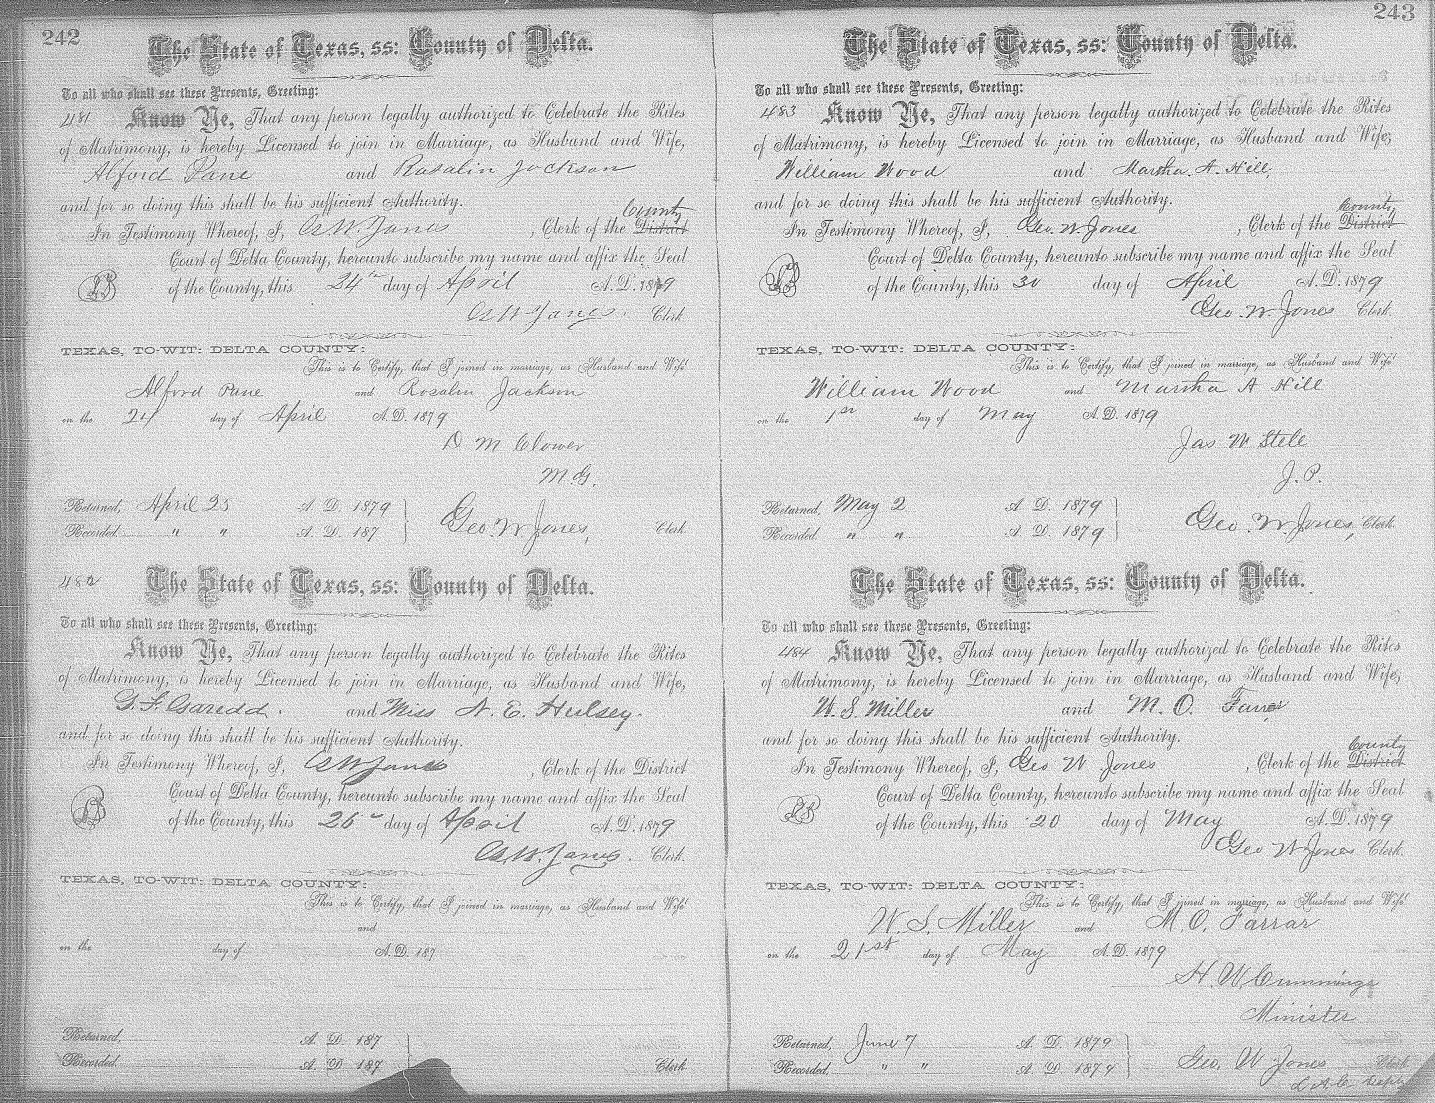 242
The State of Texas, ss: County of Delta.
To all who shall see these Presents, Greeting:
481 Know Ye, That any person legally authorized to Celebrate the Rites
of Matrimony, is hereby Licensed to join in Marriage, as Husband and Wife,
Alford Pane and Rosalin Jackson
and for so doing this shall be his sufficient Authority.
County
In Testimony Whereof, I, Geo W. Jones, Clerk of the District
Court of Delta County, hereunto subscribe my name and affix the Seal
of the County, this 24th day of April A. D. 1879
Geo W Jones. Clerk
TEXAS, TO-WIT: DELTA COUNTY:
This is to Certify, that I joined in marriage, as Husband and Wife
Alford Pane and Rosalin Jackson
on the 24 day of April A. D. 1879
D M Clower
M. G.
Returned, April 25 A. D. 1879
Recorded " " A. D. 187
Geo. W Jones, Clerk
482 The State of Texas, ss: County of Delta.
To all who shall see these Presents, Greeting:
Know Ye, That any person legally authorized to Celebrate the Rites
of Matrimony, is hereby Licensed to join in Marriage, as Husband and Wife,
and Miss N. E. Hulsey.
and for so doing this shall be his sufficient Authority.
In Testimony Whereof, I, Geo W Jones, Clerk of the District
Court of Delta County, hereunto subscribe my name and affix the Seal
of the County, this 26 day of April A. D. 1879
Geo W. Jones. Clerk.
TEXAS, TO-WIT: DELTA COUNTY:
This is to Certify, that I joined in marriage, as Husband and Wife
and
on the day of A. D. 187
Returned, A. D. 187
Recorded A. D. 187
Clerk
243
The State of Texas, ss: County of Delta.
To all who shall see these Presents, Greeting:
483 Know Ye, That any person legally authorized to Celebrate the Rites
of Matrimony, is hereby Licensed to join in Marriage, as Husband and Wife,
William Wood and Martha. A. Hill,
and for so doing this shall be his sufficient Authority.
County
In Testimony Whereof, I, Geo. W. Jones, Clerk of the District
Court of Delta County, hereunto subscribe my name and affix the Seal
of the County, this 30 day of April A. D. 1879
Geo. W. Jones Clerk.
TEXAS, TO-WIT: DELTA COUNTY:
This is to Certify, that I joined in marriage, as Husband and Wife
William Wood and Martha A Hill
on the 1st day of May A. D. 1879
Jas W Stell
J. P.
Returned, May 2 A. D. 1879
Recorded " " A. D. 1879
Geo. W. Jones, Clerk
The State of Texas, ss: County of Delta.
To all who shall see these Presents, Greeting:
484 Know Ye, That any person legally authorized to Celebrate the Rites
of Matrimony, is hereby Licensed to join in Marriage, as Husband and Wife,
W. S. Miller and M. O.
and for so doing this shall be his sufficient Authority.
County
In Testimony Whereof, I, Geo W Jones, Clerk of the District
Court of Delta County, hereunto subscribe my name and affix the Seal
of the County, this 20 day of May A. D. 1879
Geo W Jones Clerk.
TEXAS, TO-WIT: DELTA COUNTY:
This is to Certify, that I joined in marriage, as Husband and Wife
W. S. Miller and M. O. Farrar
on the 21st day of May A. D. 1879
H. W Cummings
Minister
Returned, June 7 A. D. 1879
Recorded. " " A. D. 1879
Geo. W Jones Clerk
Depty